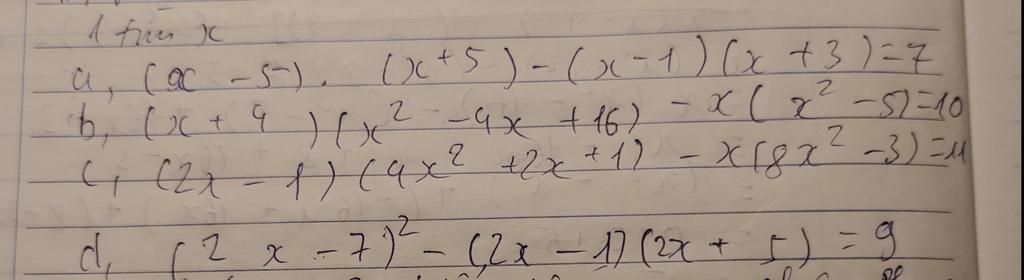 1 tìm x
a, (x - 5). (x + 5) - (x - 1)(x + 3) = 7
b, (x + 4)(x² - 4x + 16) - x(x² - 5) = 10
c, (2x - 1)(4x² + 2x + 1) - x(8x² - 3) = 11
d, (2x - 7)² - (2x - 1)(2x + 5) = 9